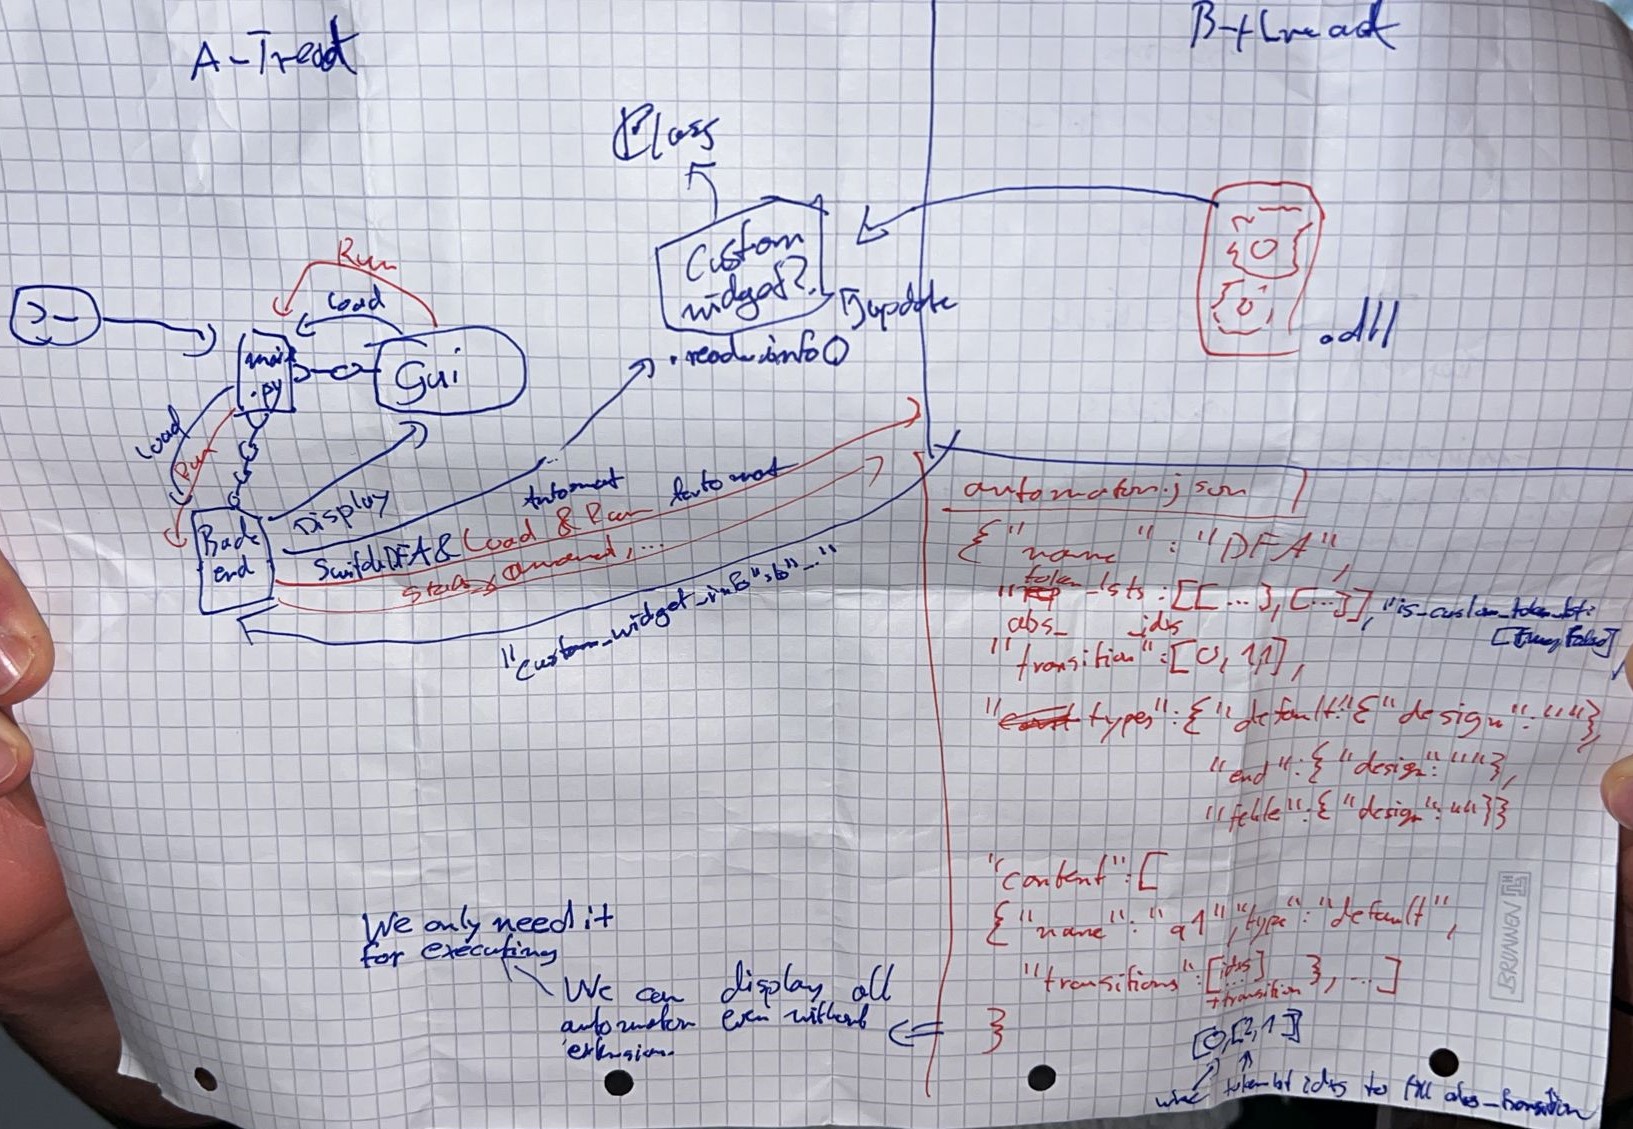 A-Tread
B-thread
Class
Custom
widget?
update
.read_info()
.dll
Run
Load
>-
main
.py
Gui
Load
Run
Back
end
Display
Automat
Automat
Switch DFA & Load & Run
"custom_widget_info":b"..."
automaton.json
{"name": "DFA",
"token_lsts: [[...], [...]], "is_custom_token_lst:
[True, False]
abs_ _idxs
"transition": [0, 1, 1],
"types": {"default": {"design": ""},
"end": {"design": ""},
"fehle": {"design": ""}}
"content": [
{"name": "q1", "type": "default",
"transitions": [idxs] }, ...]
transition
}
[0, [2, 1]]
token lst idxs to fill abs_transition
We only need it
for executing
We can display all
automaton even without
extension.
BRUNNEN